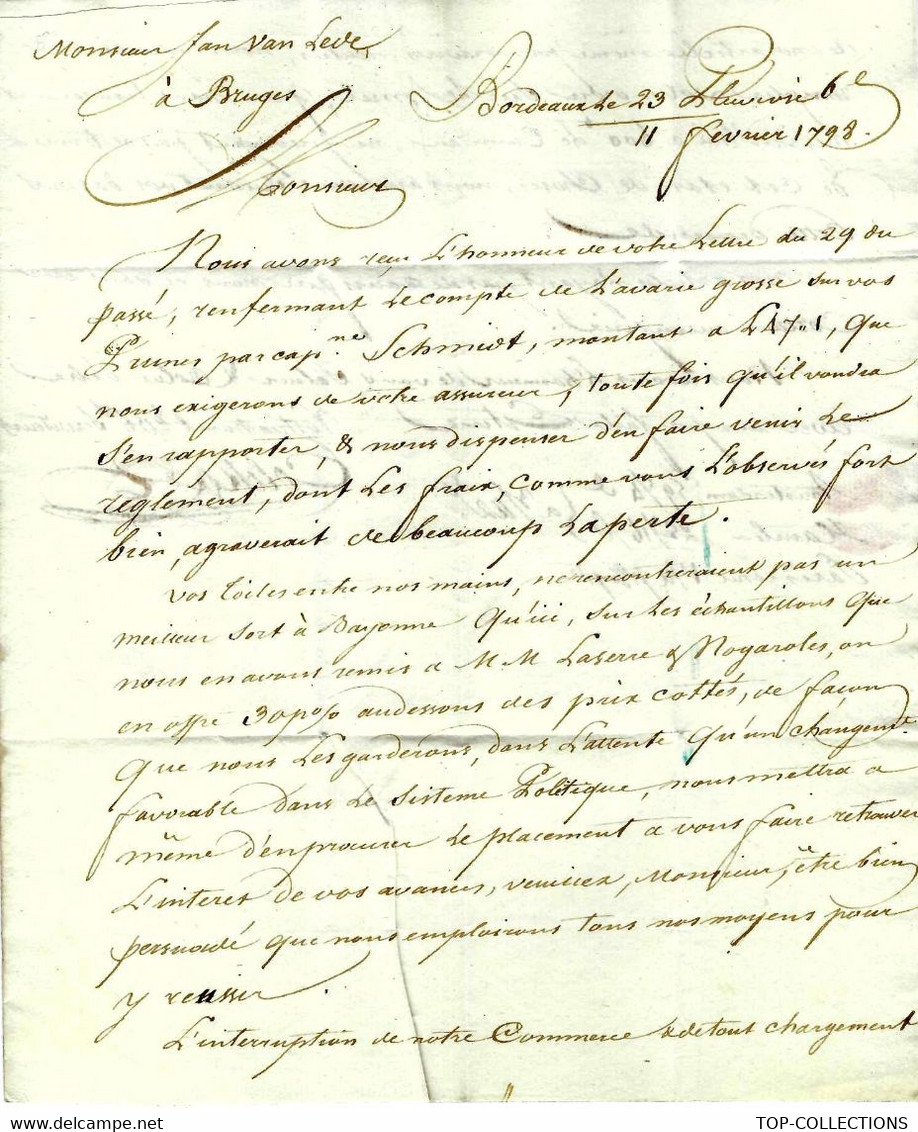 Monsieur Jan Van Lede
à Bruges
Bordeaux Le 23 Pluviose 6e
11 fevrier 1798.
Monsieur
Nous avons reçu L'honneur de votre Lettre du 29 du
passé, renfermant Le compte de L'avarie grosse sur vos
Prunes par capne Schmidt, montant a L47"1, que
nous exigerons de votre assureur, toute fois qu'il voudra
s'en rapporter, & nous dispenser d'en faire venir Le
reglement, dont Les fraix, comme vous L'observés fort
bien, agraverait de beaucoup La perte.
Vos toiles entre nos mains, ne rencontreraient pas un
meilleur sort à Bayonne qu'ici, sur Les échantillons que
nous en avons remis a MM Laserre & Nogaroles, on
en offre 30 p% audessous des prix cottés, de façon
que nous Les garderons, dans L'attente qu'un changemt
favorable dans Le Sisteme Politique, nous mettra a
même d'en procurer Le placement a vous faire retrouver
L'interet de vos avances, veuillez, Monsieur, être bien
persuadé que nous emploirons tous nos moyens pour
y reussir.
L'interruption de notre Commerce & de tout chargement
TOP-COLLECTIONS